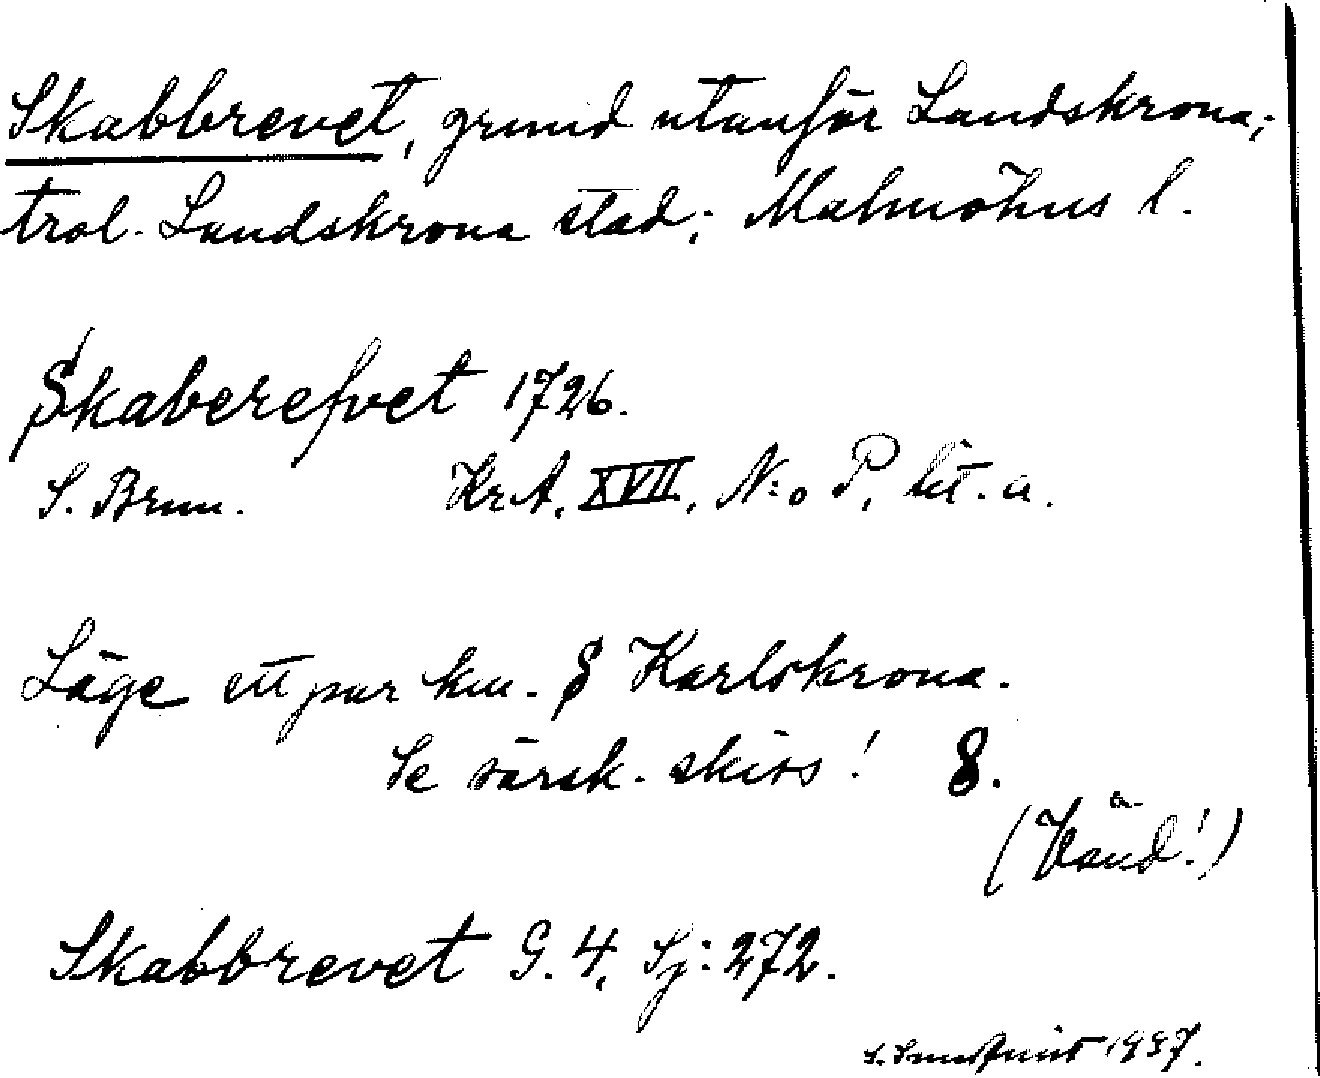 Skabbrevet, grund utanför Landskrona;
trol. Landskrona stad; Malmöhus l.
Skaberefvet 1726.
S. Brun. KrA. XVII, N:o P, lit. a.
Läge ett par km. S Karlskrona.
Se särsk. skiss! 8.
(Vänd!)
Skabbrevet G. 4, Sj: 272.
1937.